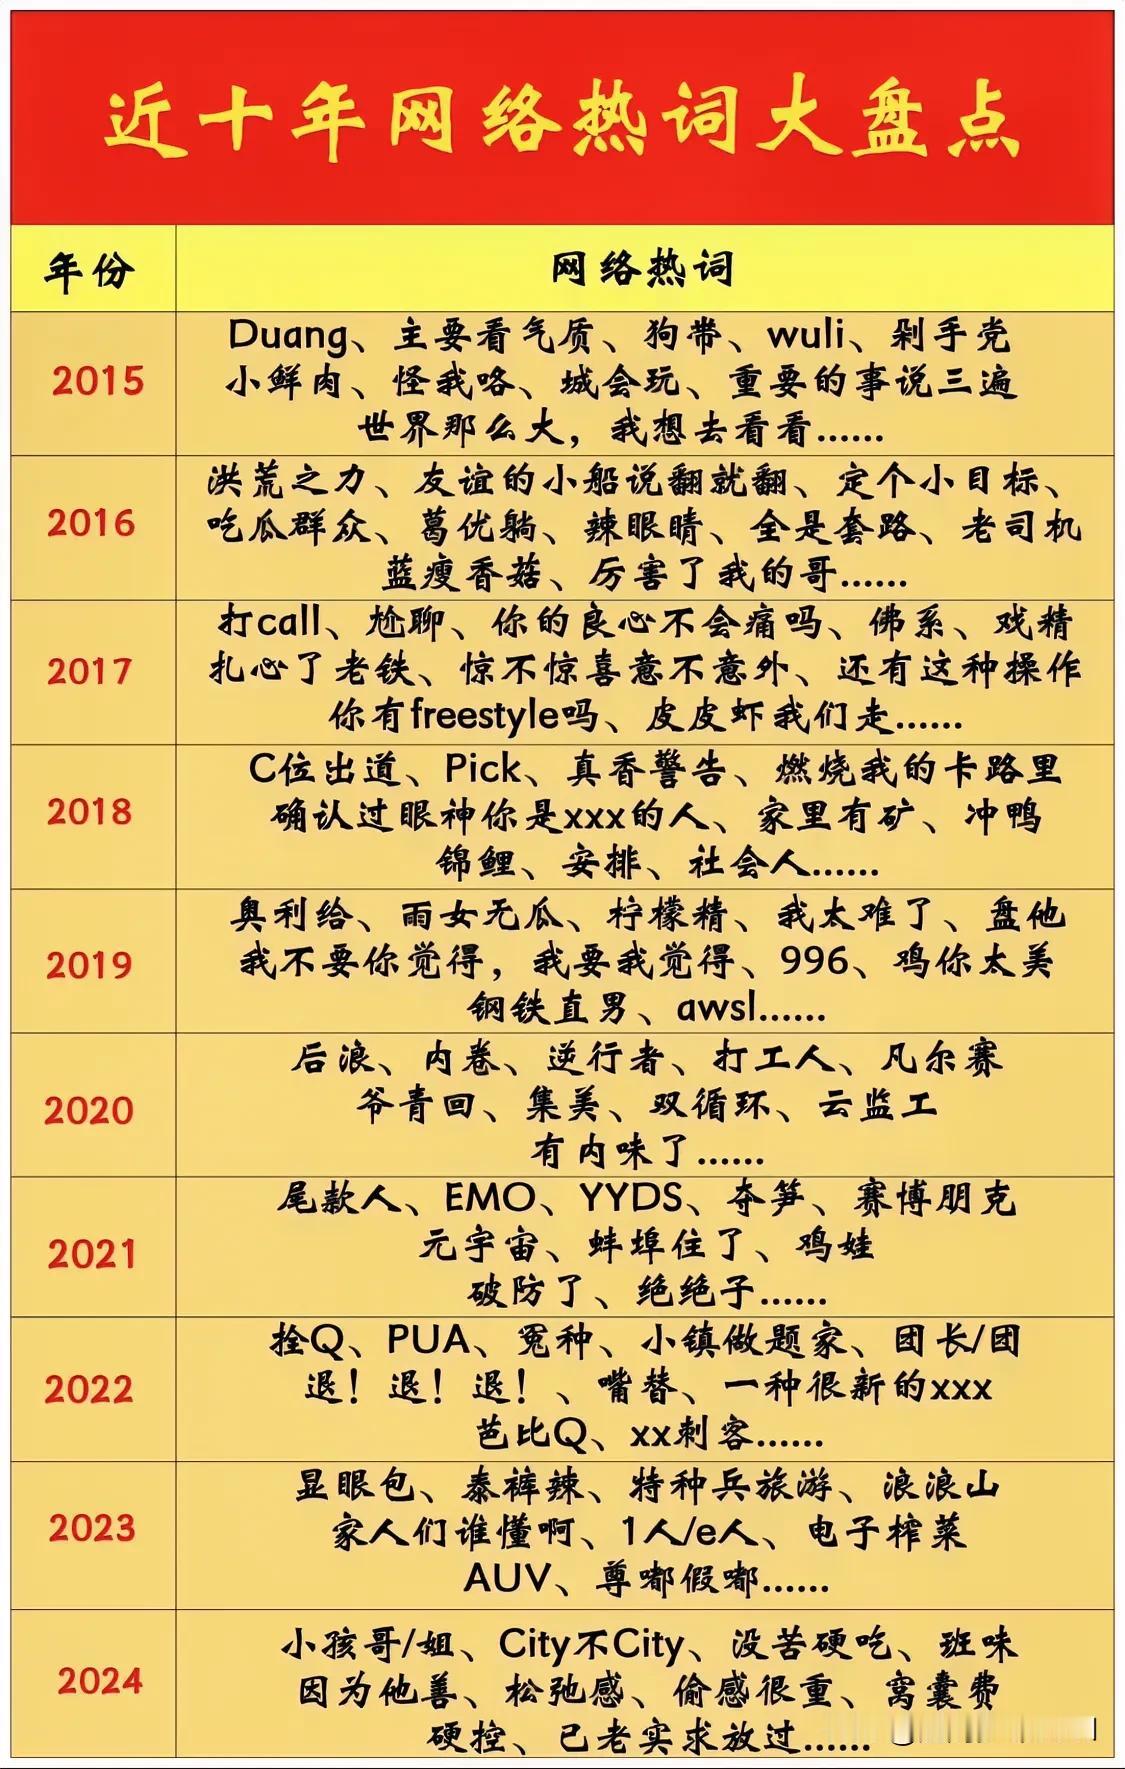 近十年网络热词大盘点
年份
网络热词
2015
Duang、主要看气质、狗带、wuli、剁手党
小鲜肉、怪我咯、城会玩、重要的事说三遍
世界那么大，我想去看看......
2016
洪荒之力、友谊的小船说翻就翻、定个小目标、
吃瓜群众、葛优躺、辣眼睛、全是套路、老司机
蓝瘦香菇、厉害了我的哥......
2017
打call、尬聊、你的良心不会痛吗、佛系、戏精
扎心了老铁、惊不惊喜意不意外、还有这种操作
你有freestyle吗、皮皮虾我们走......
2018
C位出道、Pick、真香警告、燃烧我的卡路里
确认过眼神你是xxx的人、家里有矿、冲鸭
锦鲤、安排、社会人......
2019
奥利给、雨女无瓜、柠檬精、我太难了、盘他
我不要你觉得，我要我觉得、996、鸡你太美
钢铁直男、awsl......
2020
后浪、内卷、逆行者、打工人、凡尔赛
爷青回、集美、双循环、云监工
有内味了......
2021
尾款人、EMO、YYDS、夺笋、赛博朋克
元宇宙、蚌埠住了、鸡娃
破防了、绝绝子......
2022
拴Q、PUA、冤种、小镇做题家、团长/团
退！退！退！、嘴替、一种很新的xxx
芭比Q、xx刺客......
2023
显眼包、泰裤辣、特种兵旅游、浪浪山
家人们谁懂啊、1人/e人、电子榨菜
AUV、尊嘟假嘟......
2024
小孩哥/姐、City不City、没苦硬吃、班味
因为他善、松弛感、偷感很重、窝囊费
硬控、已老实求放过......